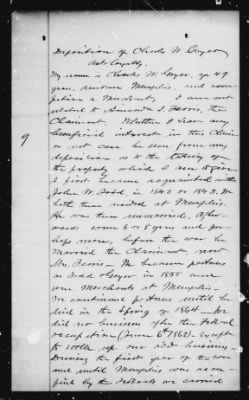 Deposition of Charles W. Goyer
As to Loyalty.
My name is Charles W. Goyer, age 49
years, residence Memphis, and occu-
pation a Merchant. I am not
related to Amanda J. Ferris, the
Claimant. Neither I have any
beneficial interest in this claim
or not can be seen from my
deposition as to the taking of
the property which I now
9
I first became acquainted with
John W. Todd in 1842 or 1843. We
both then resided at Memphis.
He was then unmarried. After-
wards some 6 or 8 years and per-
haps more, before the war he
married the Claimant, now
Mrs. Ferris. We became partners
as Todd & Goyer in 1855 and
were Merchants at Memphis.
We continued partners until he
died in the Spring of 1864. We
did no business after the Federal
occupation (June 6th 1862) except
to settle up our old business.
During the first year of the war
and until Memphis was occu-
pied by the Federals we carried